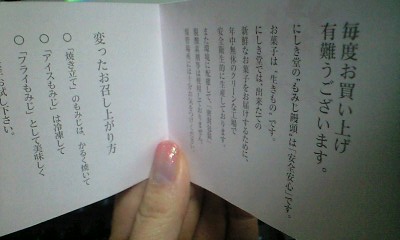 毎度お買い上げ
有難うございます。
にしき堂の“もみじ饅頭”は“安全安心”です。
お菓子は“生きもの”です。
にしき堂では、出来たての
新鮮なお菓子をお届けするために、
年中無休のクリーンな工場で
安全衛生的に生産しております。
また環境に配慮し、
変ったお召し上がり方
○「焼き立て」のもみじは、かるく焼いて
○「アイスもみじ」は冷凍して
○「フライもみじ」として美味しく
お試し下さい。